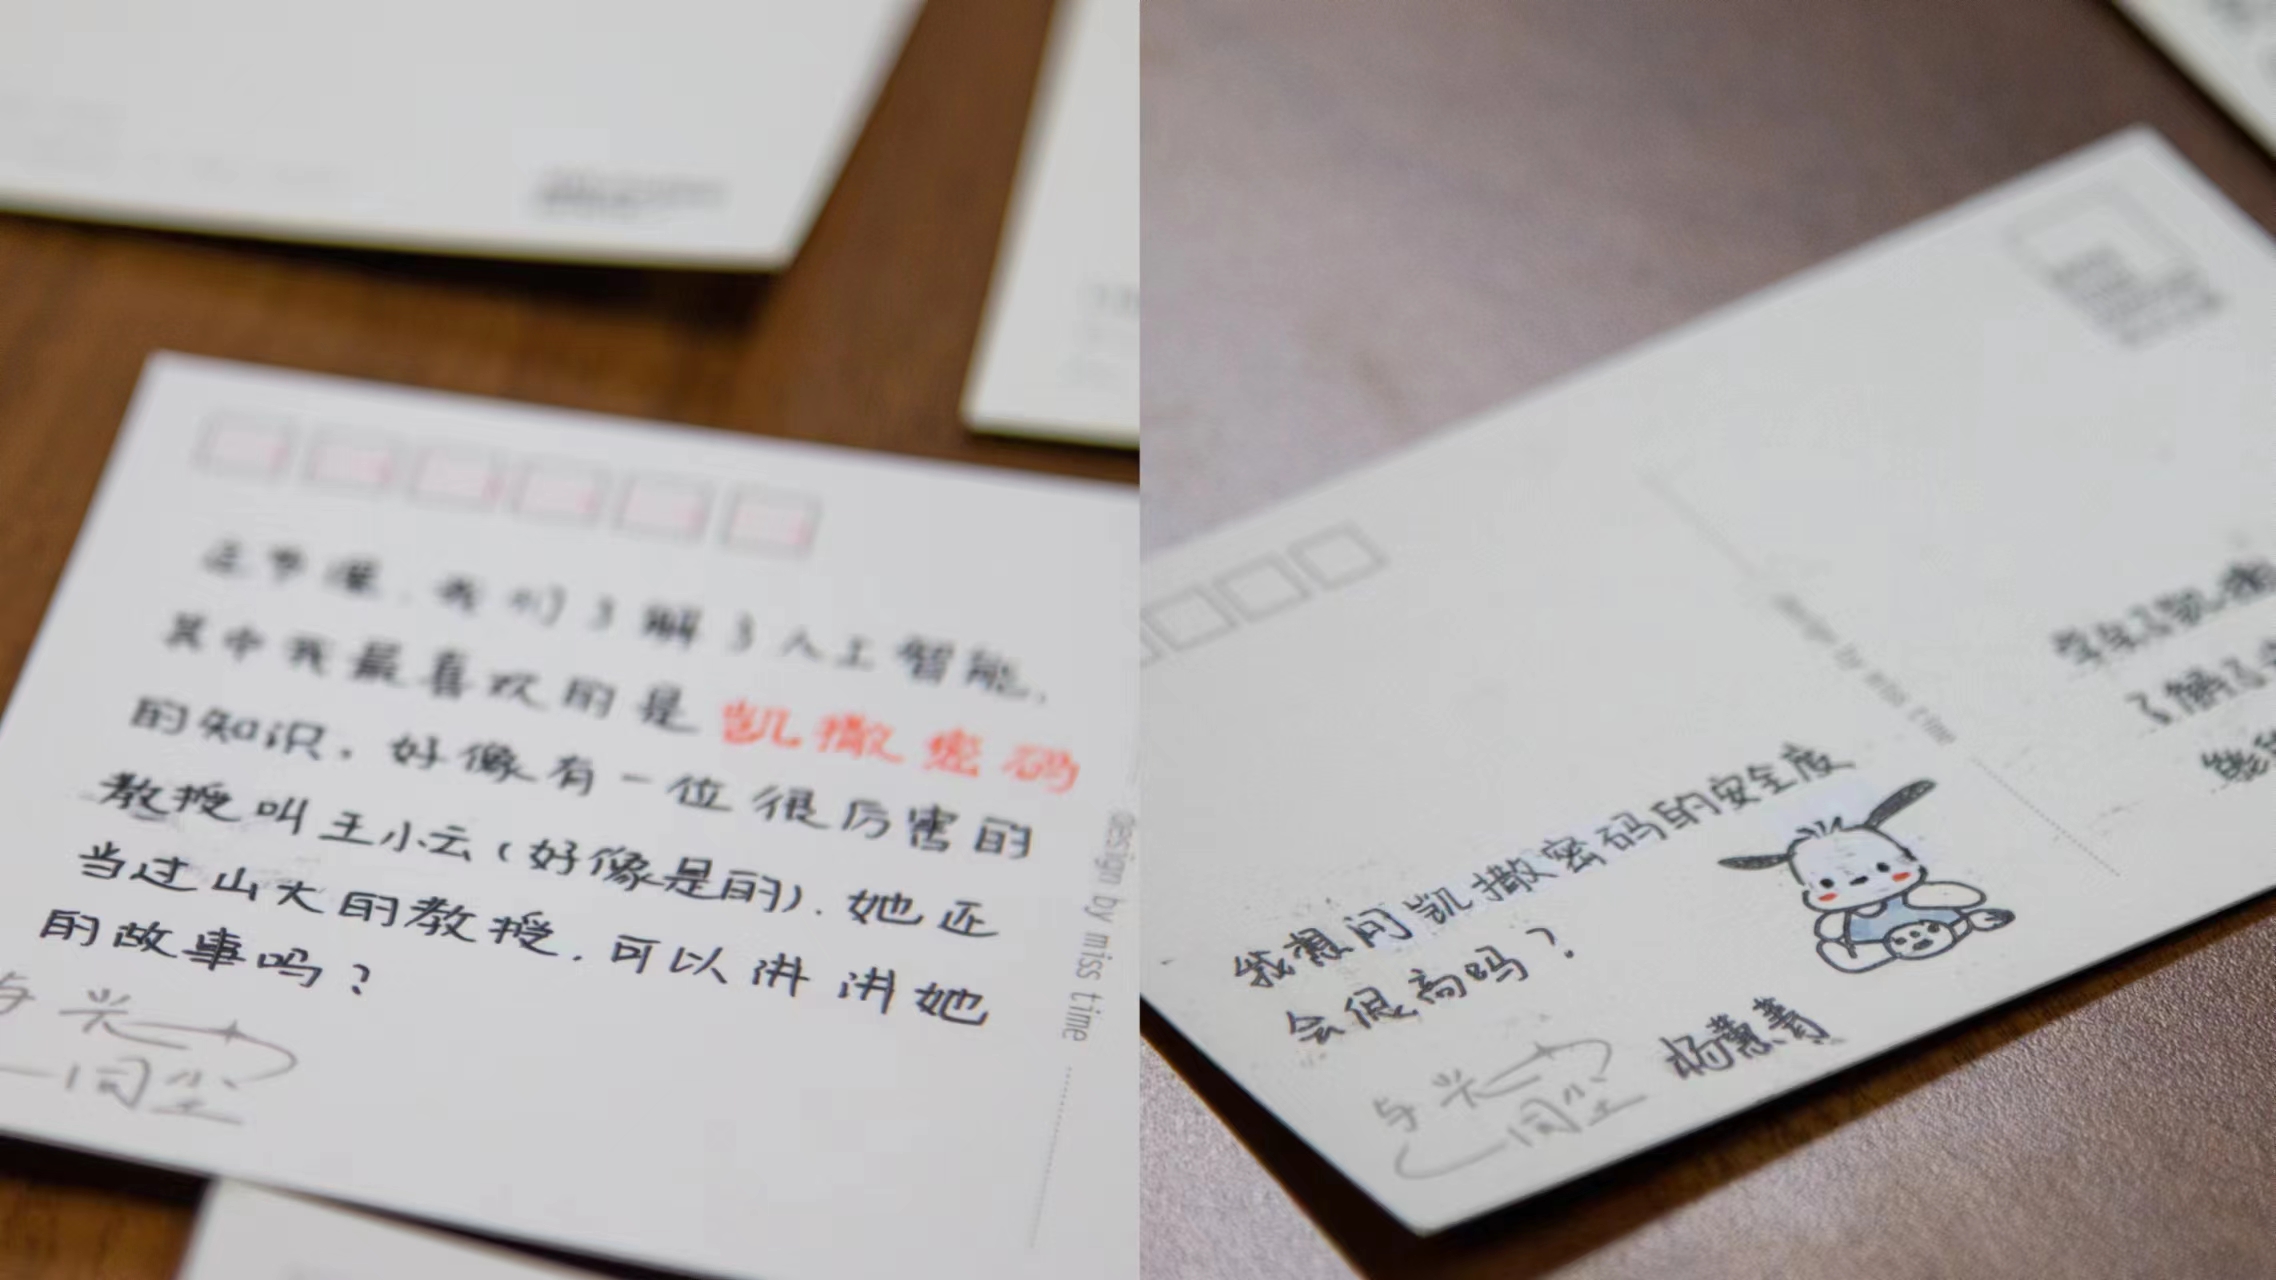 这节课，我们了解了人工智能，
其中我最喜欢的是凯撒密码
的知识，好像有一位很厉害的
教授叫王小云（好像是的），她还
当过山大的教授，可以讲讲她
的故事吗？
与光
同尘
design by miss time
我想问凯撒密码的安全度
会很高吗？
与光
同尘
杨蕙菁
design by miss time
了解了